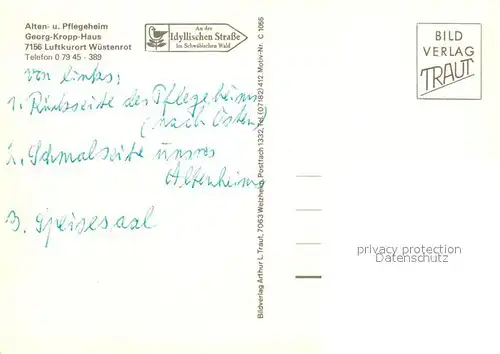 Alten- u. Pflegeheim
Georg-Kropp-Haus
7156 Luftkurort Wüstenrot
Telefon 0 79 45 - 389
An der
Idyllischen Straße
Im Schwäbischen Wald
von links:
1. Rückseite des Pflegeheims
(nach Osten)
2. Schmalseite unsres
Altenheims
3. Speisesaal
Bildverlag Arthur L. Traut, 7063 Welzheim, Postfach 1332, Tel. (07182) 412 Motiv-Nr. C 1055
BILD
VERLAG
TRAUT
privacy protection
Datenschutz